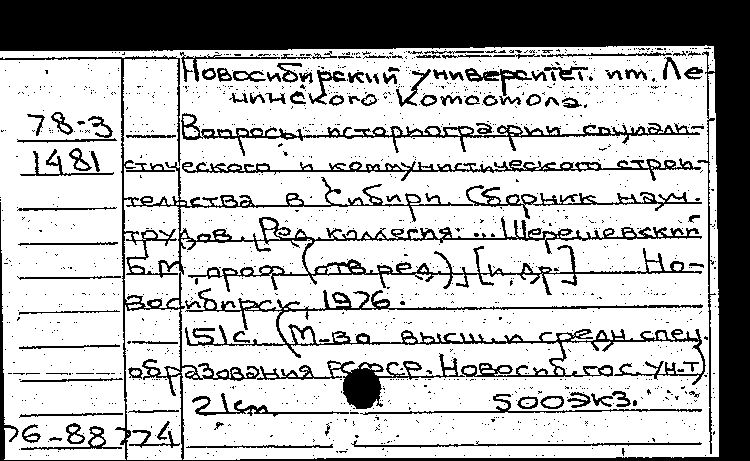 Новосибирский университет. им. Ле-
нинского комсомола.
78-3 Вопросы историографии социали-
1481 стического и коммунистического строи-
тельства в Сибири. Сборник науч.
трудов. [Ред. коллегия: ... Шерешевский
Б.М., проф. (отв. ред.), [и др.] Но-
восибирск, 1976.
151 с. (М-во высш. и средн. спец.
образования РСФСР. Новосиб. гос. ун-т)
21 cm. 500 экз.
76-88774